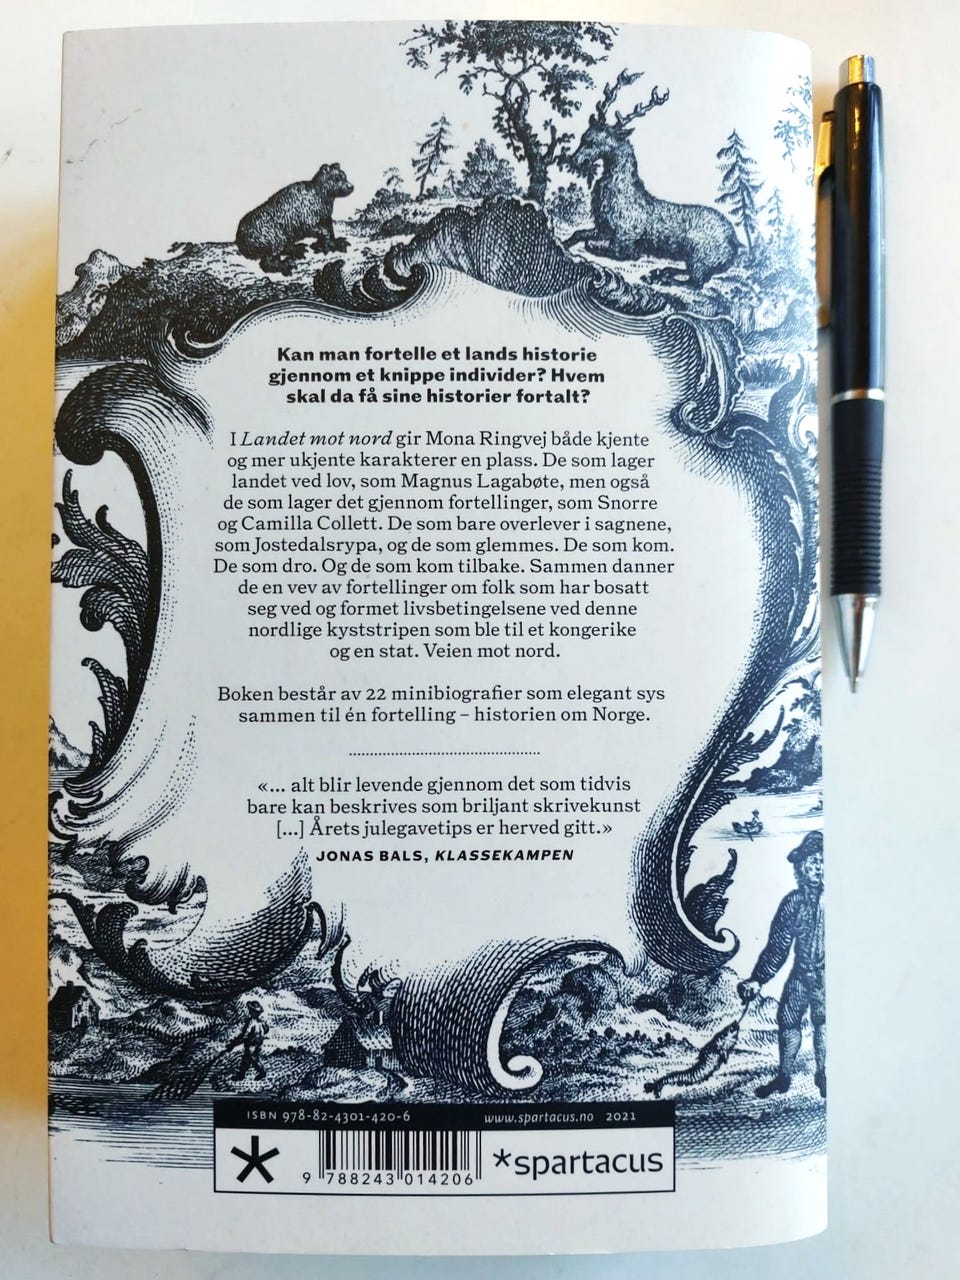 Kan man fortelle et lands historie
gjennom et knippe individer? Hvem
skal da få sine historier fortalt?
I Landet mot nord gir Mona Ringvej både kjente
og mer ukjente karakterer en plass. De som lager
landet ved lov, som Magnus Lagabøte, men også
de som lager det gjennom fortellinger, som Snorre
og Camilla Collett. De som bare overlever i sagnene,
som Jostedalsrypa, og de som glemmes. De som kom.
De som dro. Og de som kom tilbake. Sammen danner
de en vev av fortellinger om folk som har bosatt
seg ved og formet livsbetingelsene ved denne
nordlige kyststripen som ble til et kongerike
og en stat. Veien mot nord.
Boken består av 22 minibiografier som elegant sys
sammen til én fortelling – historien om Norge.
«... alt blir levende gjennom det som tidvis
bare kan beskrives som briljant skrivekunst
[...] Årets julegavetips er herved gitt.»
JONAS BALS, KLASSEKAMPEN
ISBN 978-82-4301-420-6 www.spartacus.no 2021
*spartacus
9 788243 014206